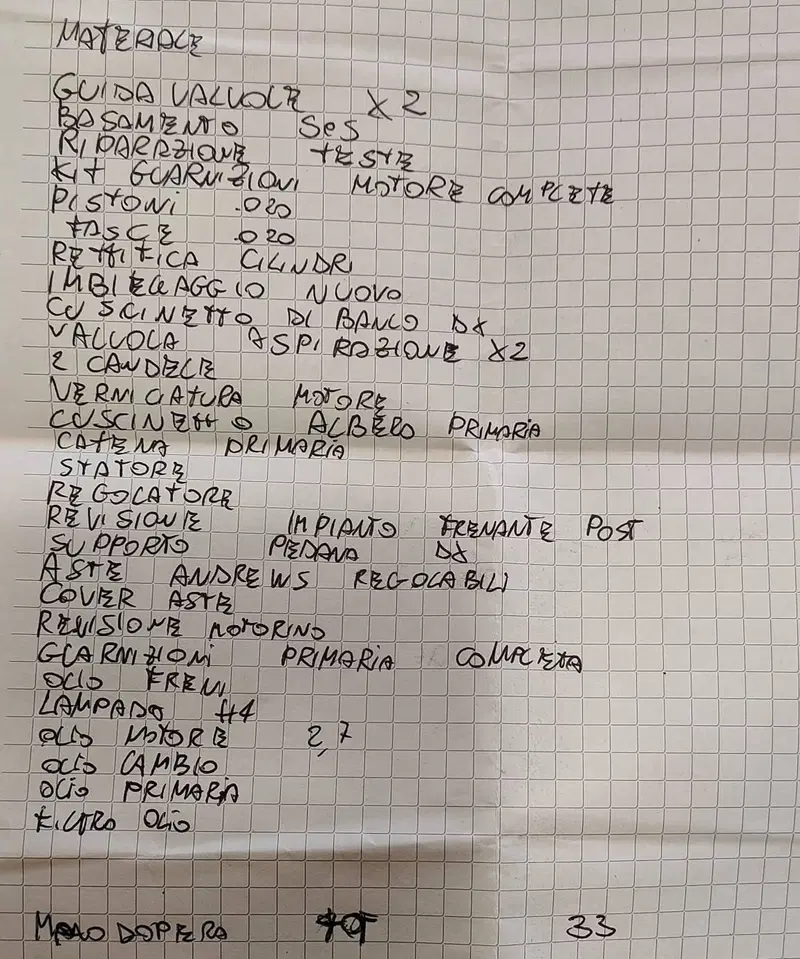 MATERIALE
GUIDA VALVOLE X2
BASAMENTO S&S
RIPARAZIONE TESTE
KIT GUARNIZIONI MOTORE COMPLETE
PISTONI .020
FASCE .020
RETTIFICA CILINDRI
IMBIELAGGIO NUOVO
CUSCINETTO DI BANCO DX
VALVOLA ASPIRAZIONE X2
2 CANDELE
VERNICIATURA MOTORE
CUSCINETTO ALBERO PRIMARIA
CATENA PRIMARIA
STATORE
REGOLATORE
REVISIONE IMPIANTO FRENANTE POST
SUPPORTO PEDANA DX
ASTE ANDREWS REGOLABILI
COVER ASTE
REVISIONE MOTORINO
GUARNIZIONI PRIMARIA COMPLETA
OLIO FRENI
LAMPADO H4
OLIO MOTORE 2,7
OLIO CAMBIO
OLIO PRIMARIA
FILTRO OLIO
MANODOPERA TOT 33